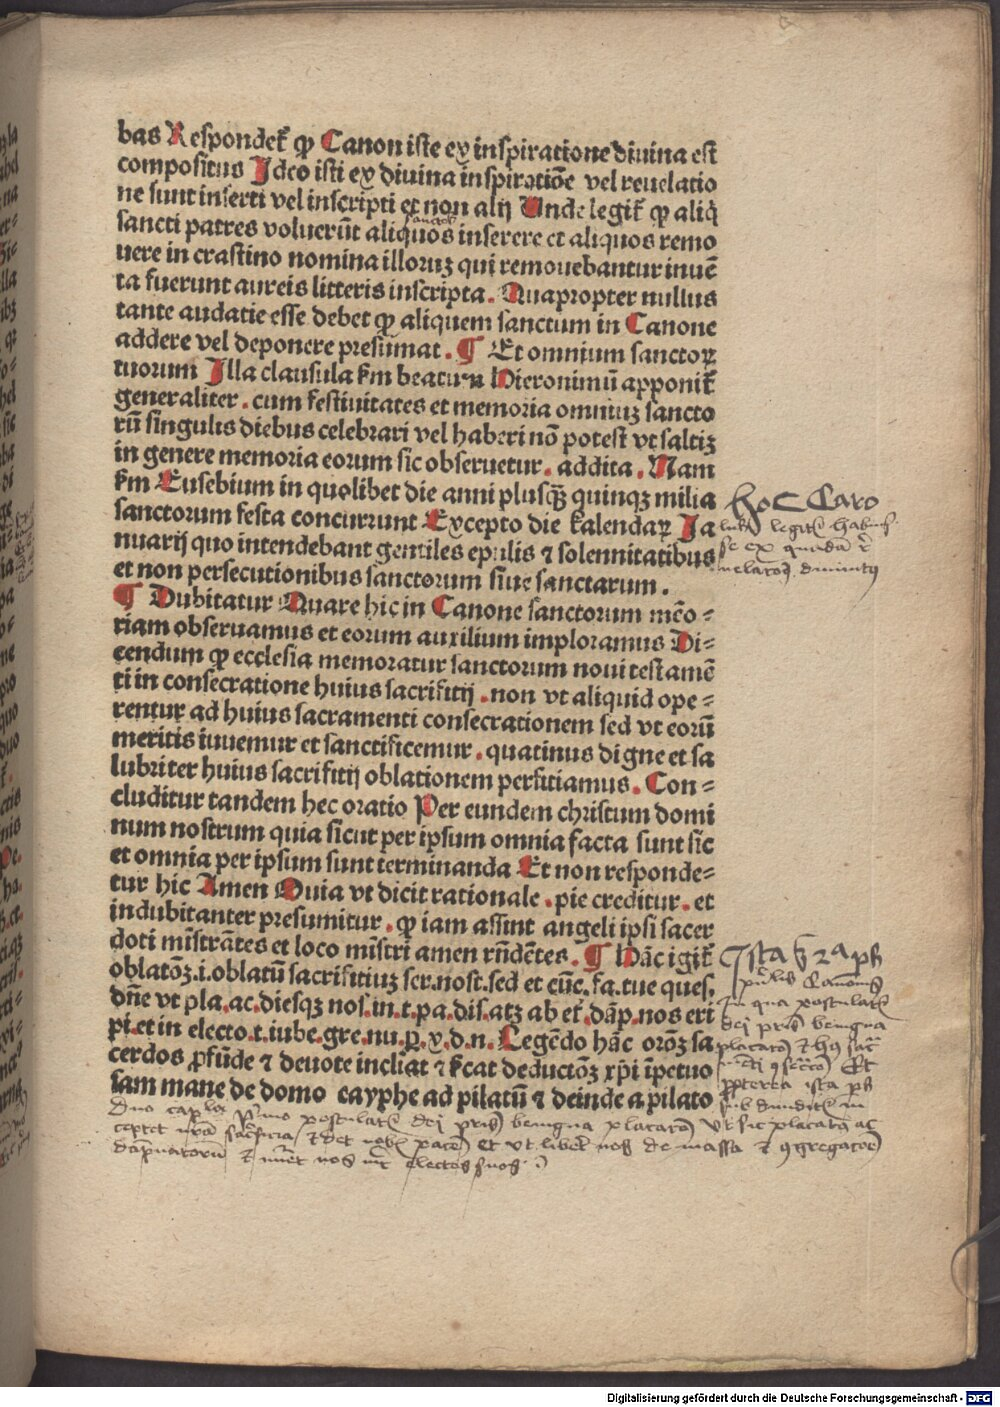 bas Respondet᷑ ꝙ Canon iste ex inspiratione diuina est
compositus Ideo isti ex diuina inspiratiōe vel reuelatio
ne sunt inserti vel inscripti et non alij Unde legit᷑ ꝙ aliq̇
sancti patres voluerūt aliquos sanctos inserere et aliquos remo
uere in crastino nomina illoruꝫ qui remouebantur inuē
ta fuerunt aureis litteris inscripta. Quapropter nullus
tante audatie esse debet ꝙ aliquem sanctum in Canone
addere vel deponere presumat. ¶ Et omnium sanctoꝝ
tuorum Illa clausula ẜm beatum Hieronimū apponit᷑
generaliter. cum festiuitates et memoria omniuꝫ sancto
rū singulis diebus celebrari vel haberi nō potest vt saltiꝫ
in genere memoria eorum sic obseruetur. addita. Nam
ẜm Eusebium in quolibet die anni plusꝙ̄ quinqꝫ milia
sanctorum festa concurrunt Excepto die kalendaꝝ Ja
nuarij quo intendebant gentiles epulis ⁊ solennitatibus
et non persecutionibus sanctorum siue sanctarum.
¶ Dubitatur Quare hic in Canone sanctorum mēo⸗
riam obseruamus et eorum auxilium imploramus Di⸗
cendum ꝙ ecclesia memoratur sanctorum noui testamē
ti in consecratione huius sacrifitij. non vt aliquid ope⸗
rentur ad huius sacramenti consecrationem sed vt eorū
meritis iuuemur et sanctificemur. quatinus digne et sa
lubriter huius sacrifitij oblationem perfitiamus. Con⸗
cluditur tandem hec oratio Per eundem christum domi
num nostrum quia sicut per ipsum omnia facta sunt sic
et omnia per ipsum sunt terminanda Et non responde⸗
tur hic Amen Quia vt dicit rationale. pie creditur. et
indubitanter presumitur. ꝙ iam assint angeli ipsi sacer
doti mīstrātes et loco mīstri amen rn̄dētes. ¶ Hāc igit᷑
oblatōꝫ.i.oblatū sacrifitiuꝫ ser.nost.sed et cūc.fa.tue ques.
dn̄e vt pla.ac.diesqꝫ nos.in.t.pa.dis.atꝫ ab et᷑.dāp.nos eri
pi.et in electo.t.iube.gre.nu.ꝑ.x.d.n. Legēdo hāc orōꝫ sa
cerdos ꝓfūde ⁊ deuote incliat ⁊ ẜcat deductōꝫ xp̄i īpetuo
sam mane de domo cayphe ad pilatū ⁊ deinde a pilato
hoc Caro
legit᷑
se ex quadā
Ista 2ᵃ ps
Canonis
In qua postulat᷑
dei pris benigna
ista ps
postulat᷑ dei pris benigna placatio Ut sic placata ac
ceptet nrām sacrificia et det nobis pacem Et ut liberet nos de massa et
dāpnatorum et nos electos suos
Digitalisierung gefördert durch die Deutsche Forschungsgemeinschaft - DFG